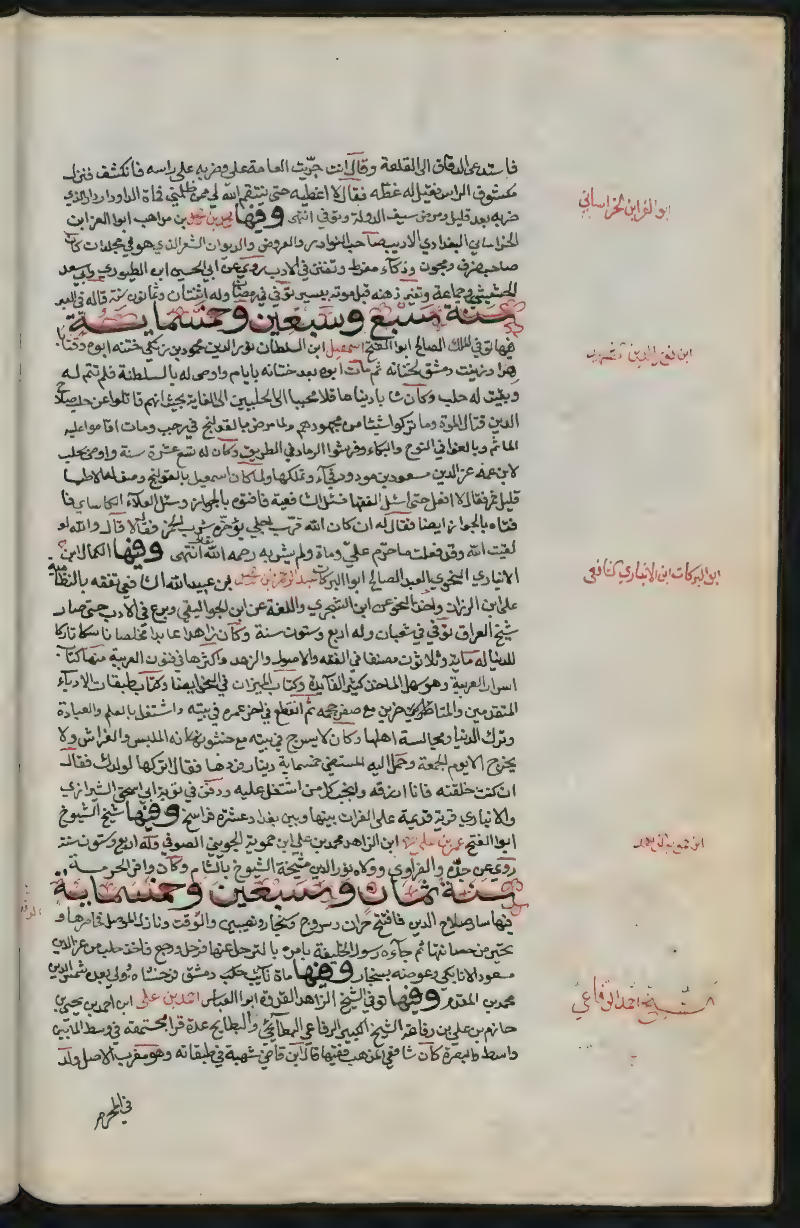 فاستدعى الدقاق الى القلعة وقال انت جرّيت العامة علي وضربه على راسه فانكشف فنزل
مكشوف الراس فقيل له غطه فقال لا اغطيه حتى ينتقم الله لي ممن ظلمني فماة الداودار الذي
ضربه بعد قليل ومرض سيف الدولة وتوفي انتهى وفيها محمد بن بن مواهب ابو العز ابن
الخراساني البغدادي الاديب صاحب النوادر والعروض والديوان الشعر الذي هو في مجلدات كان
صاحب ظرف ومجون وذكاء مفرط وتفنن في الادب روى عن ابي الحسين ابن الطيوري وابي سعد
بن خشيش وجماعة وتغير ذهنه قبل موته بيسير توفي في رمضان وله اثنتان وثمانون سنة قاله في العبر
سنة سبع وسبعين وخمسماية
فيها توفي الملك الصالح ابو الفتح اسمعيل ابن السلطان نور الدين محمود بن زنكي ختنه ابوه وقتا
وزينت دمشق لختانه ثم مات ابوه بعد ختانه بايام واوصى له بالسلطنة فلم تتم له
وبقيت له حلب وكان شابا دينا عاقلا محببا الى الحلبيين الى الغاية بحيث انهم قاتلوا عن حلب صلاح
الدين قتال الموت وما تركوا شيئا من مجهودهم ولما مرض بالقولنج في رجب ومات اقاموا عليه
الماتم وبالغوا في النوح والبكاء وفرشوا الرماد في الطريق وكان له تسع عشرة سنة واوصى بحلب
لابن عمه عز الدين مسعود بن مودود فجاء وتملكها ولما كان اسمعيل بالقولنج وصف له الاطبا
قليل خمر فقال لا افعل حتى اسئل الفقها فسئل الشافعية فافتوه بالجواز وسئل العلاء الكاساي فا
فتاه بالجواز ايضا فقال له ان كان الله قرب اجلي يؤخره شرب الخمر فقال لا قال والله لو
لقيت الله وقد فعلت ما حرم علي وماة ولم يشربه رحمه الله انتهى وفيها الكمال ابن
الانباري النحوي العبد الصالح ابو البركات عبد الرحمن بن محمد بن عبيد الله الشافعي تفقه بالنظامية
على ابن الرزاز واخذ النحو عن ابن الشجري واللغة عن ابن الجواليقي وبرع في الادب حتى صار
شيخ العراق توفي في شعبان وله اربع وستون سنة وكان زاهدا عابدا مخلصا ناسكا تاركا
للدنيا له ماية وثلاثون مصنفا في الفقه والاصول والزهد واكثرها في فنون العربية منها كتاب
اسرار العربية وهو سهل الماخذ كثير الفائدة وكتاب الميزان في النحو ايضا وكتاب طبقات الادباء
المتقدمين والمتاخرين مع صغر حجمه ثم انقطع في اخر عمره في بيته واشتغل بالعلم والعبادة
وترك الدنيا ومجالسة اهلها وكان لا يسرج في بيته مع خشونة الملبس والفراش ولا
يخرج الا يوم الجمعة وحمل اليه المستضي خمسماية دينار فردها فقال اتركها لولدك فقال
ان كنت خلقته فانا ارزقه ودفن في تربة ابي اسحق الشيرازي
والانباري قرية قديمة على الفرات بينها وبين بغداد عشرة فراسخ وفيها شيخ الشيوخ
ابو الفتح عمر بن علي ابن الزاهد محمد بن علي ابن حمويه الجويني الصوفي وله اربع وستون سنة
روى عن جده والفراوي وولاه نور الدين مشيخة الشيوخ بالشام وكان وافر الحرمة
سنة ثمان وسبعين وخمسماية
فيها سار صلاح الدين فافتتح حران وسروج وسنجار ونصيبين والرقة ونازل الموصل فحاصرها و
تحير من حصانتها ثم جاءه رسول الخليفة يامره بالترحل عنها فرحل ورجع فاخذ حلب من عز الدين
مسعود الاتابكي وعوضه بسنجار وفيها ماة نائب دمشق فرخشاه وولي بعده شمس الدين
محمد بن المقدم وفيها توفي الشيخ الزاهد القدوة ابو العباس احمد بن علي ابن احمد بن يحيى بن
حازم بن علي بن رفاعة الشيخ الكبير الرفاعي البطائحي والبطايح عدة قرا مجتمعة في وسط الماء بين
واسط والبصرة كان شافعي المذهب فقيها قال ابن قاضي شهبة في طبقاته وهو مغربي الاصل ولد
في المحرم
ابو العز ابن الخراساني
ابن نور الدين
ابو البركات ابن الانباري
الشيخ احمد الرفاعي